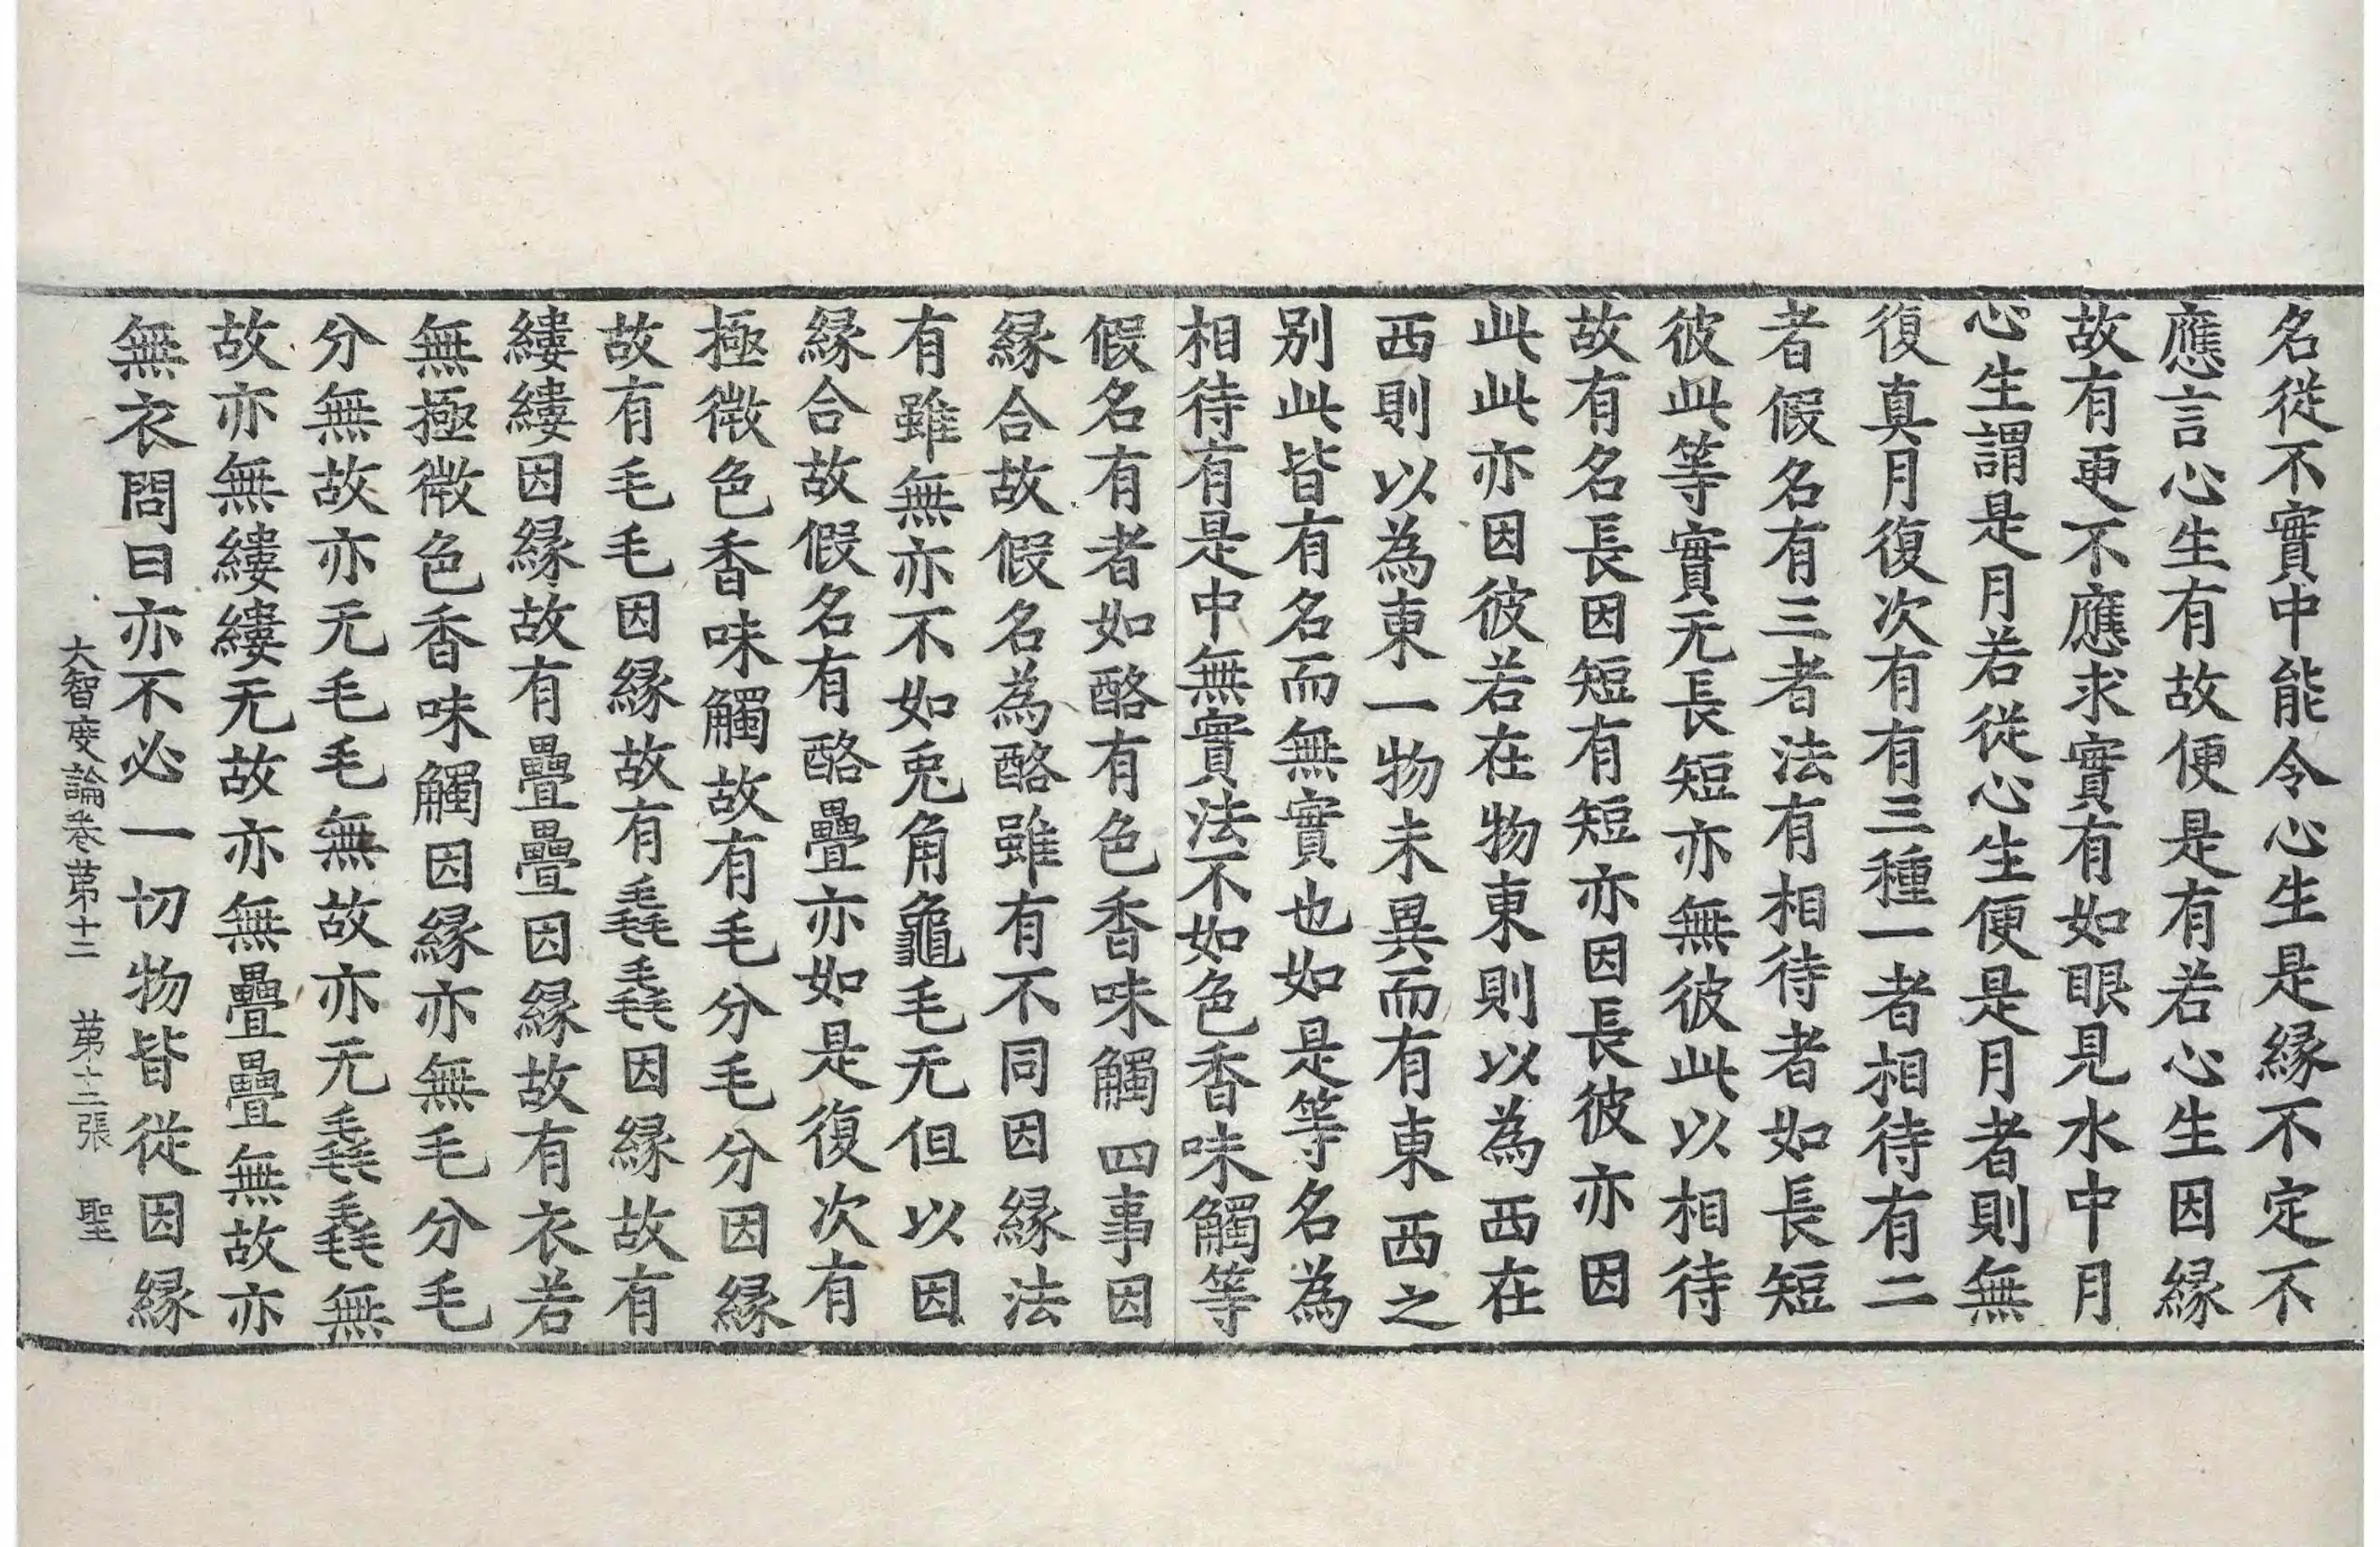 名從不實中能令心生是縁不定不
應言心生有故便是有若心生因縁
故有更不應求實有如眼見水中月
心生謂是月若從心生便是月者則無
復真月復次有有三種一者相待有二
者假名有三者法有相待者如長短
彼此等實无長短亦無彼此以相待
故有名長因短有短亦因長彼亦因
此此亦因彼若在物東則以為西在
西則以為東一物未異而有東西之
别此皆有名而無實也如是等名為
相待有是中無實法不如色香味觸等
假名有者如酪有色香味觸四事因
縁合故假名為酪雖有不同因縁法
有雖無亦不如兎角龜毛无但以因
縁合故假名有酪疊亦如是復次有
極微色香味觸故有毛分毛分因縁
故有毛毛因縁故有毳毳因縁故有
縷縷因縁故有疊疊因縁故有衣若
無極微色香味觸因縁亦無毛分毛
分無故亦无毛毛無故亦无毳毳無
故亦無縷縷无故亦無疊疊無故亦
無衣問曰亦不必一切物皆從因縁
大智度論卷苐十二 苐十二張 聖